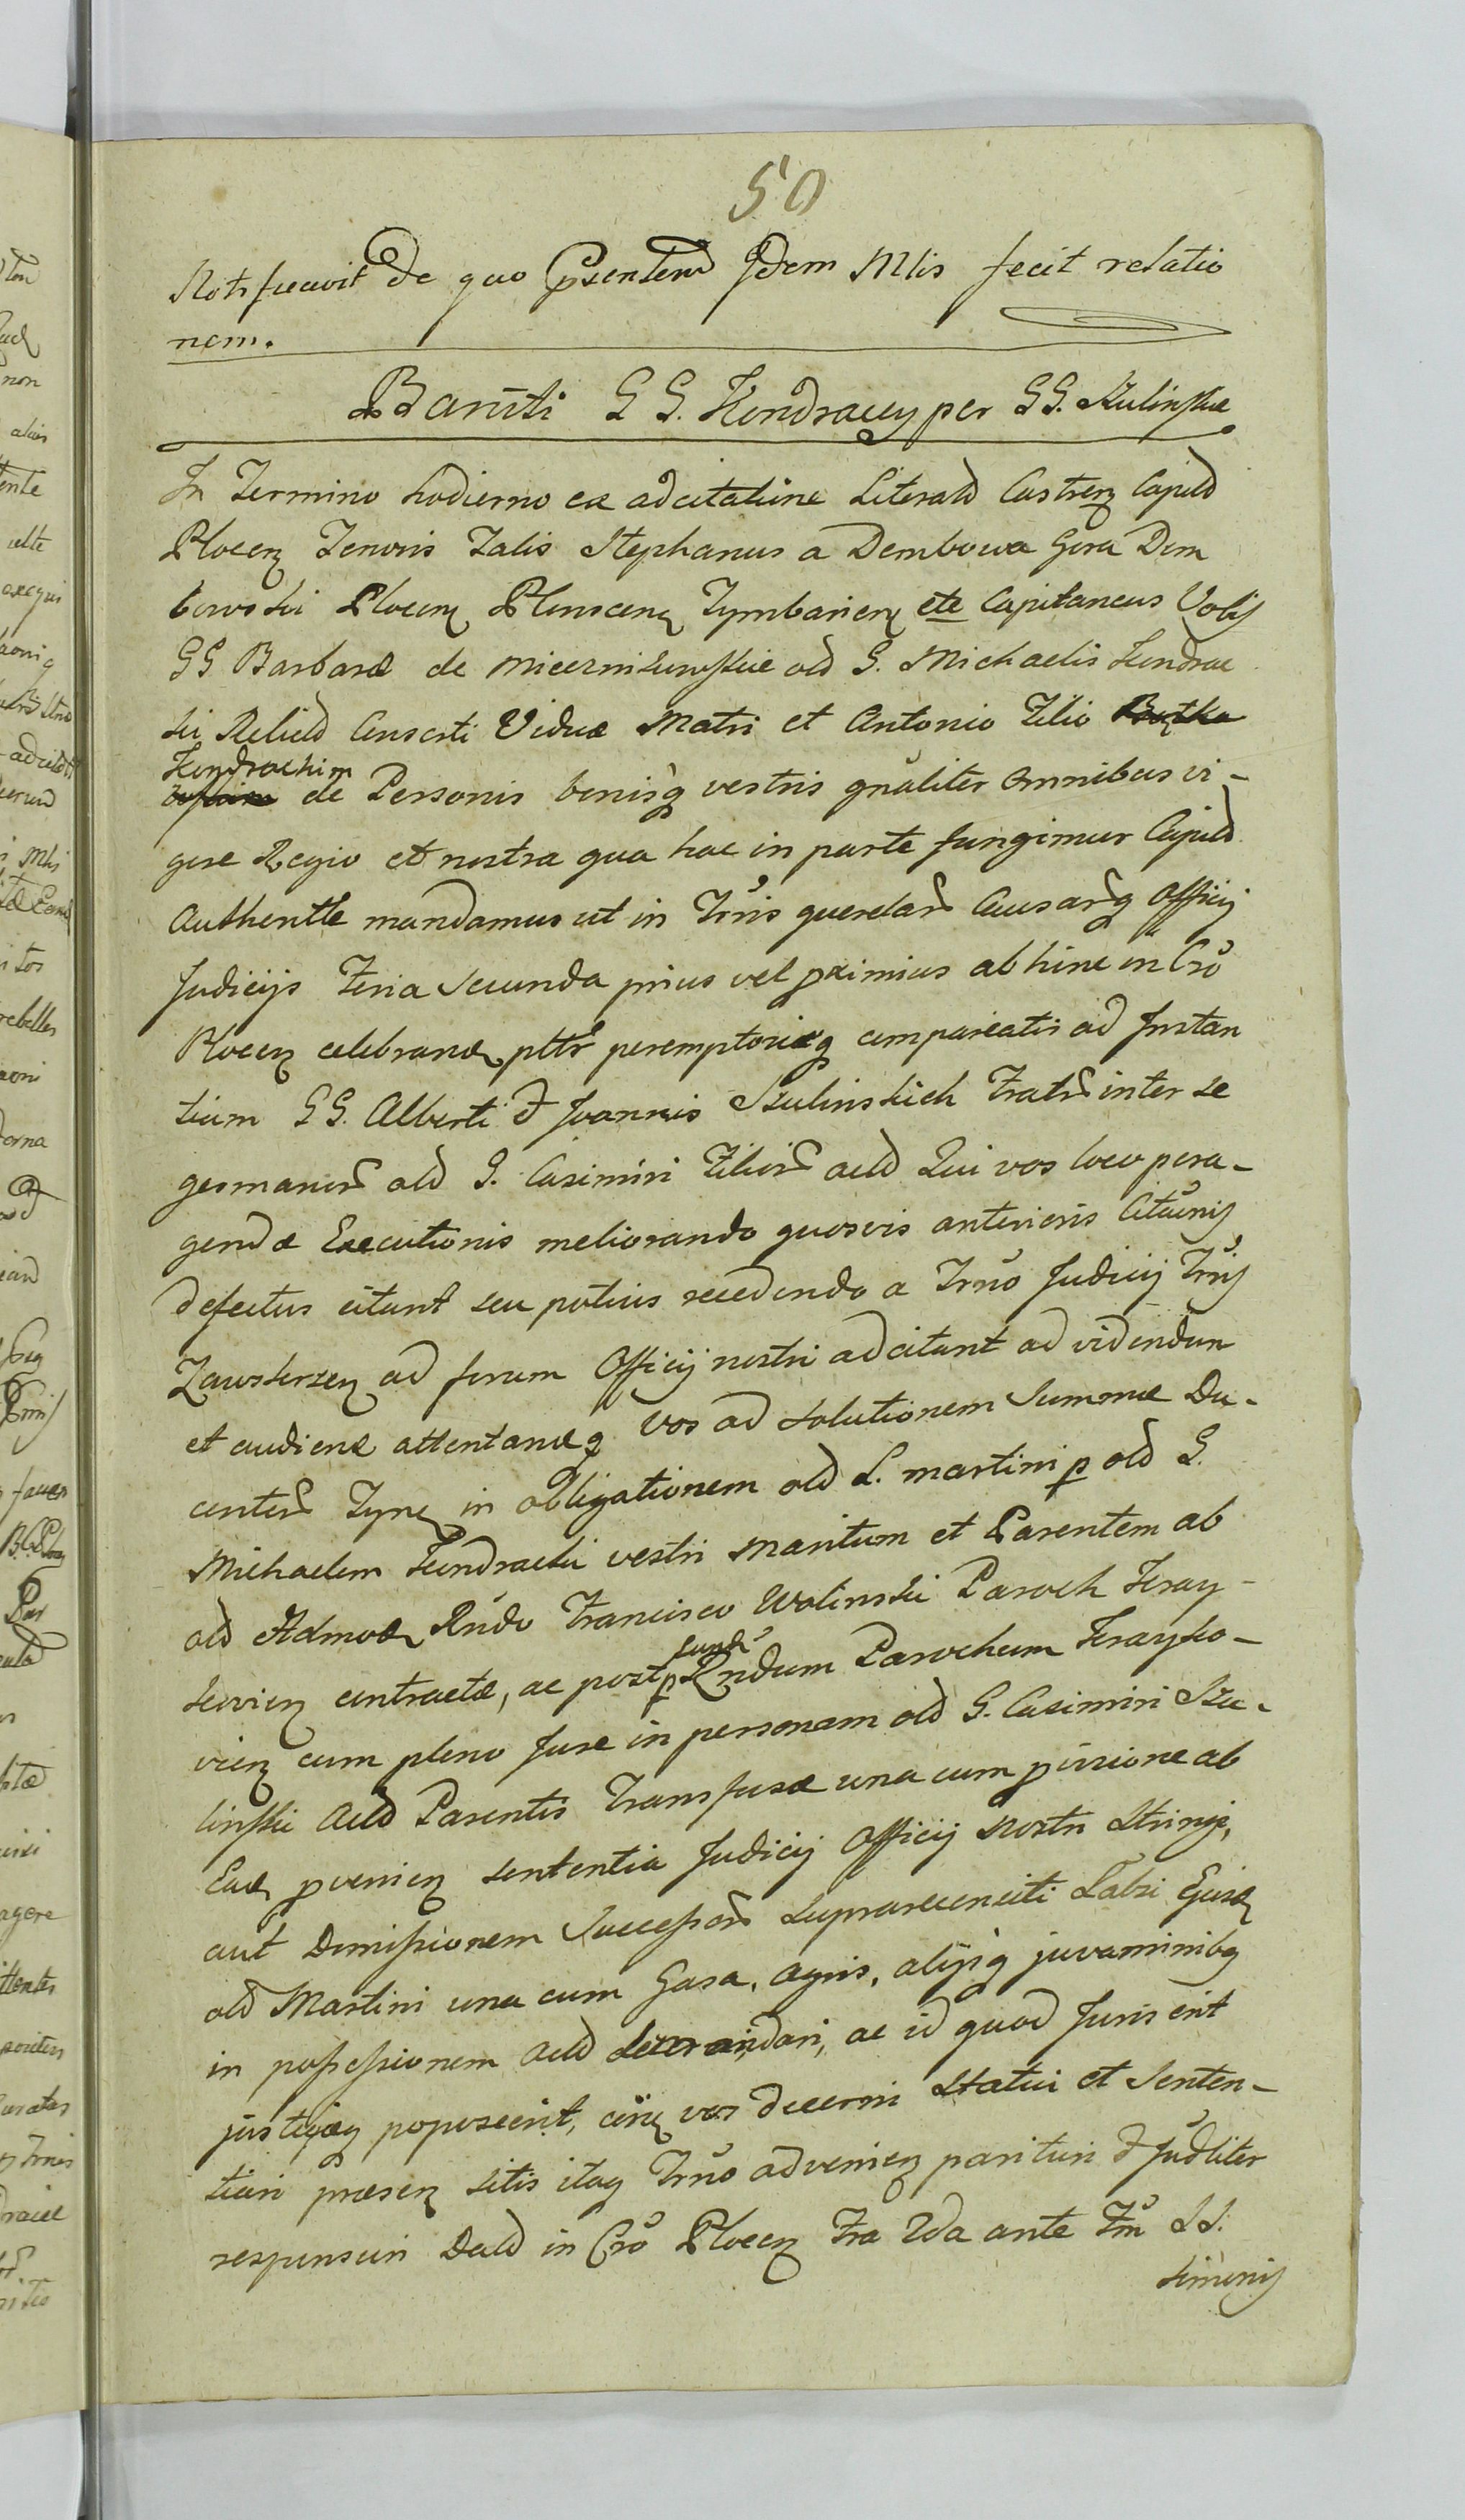 50
Notificavit de quo Psentem Idem Mlis fecit relatio
nem.
Baniti G G. Kendraccy per GG. Szulinskie
In Termino hodierno ex adcitatione Literald Castren Capild
Plocen Tenoris Talis Stephanus a Dembowa Gora Dem
bowski Plocen Plonscen Tymbarien etc Capitaneus Vobis
GG Barbaræ de Miecznikowskie old G. Michaelis Kendrac
ki Relictd Consorti Viduæ Matri et Antonio Filio
Kendrackim
de Personis bonisq vestris gnaliter omnibus vi-
gore Regio et nostra qua hac in parte fungimur Capild
Authentte mandamus ut in Trnis querelard Causarq Officij
Judicijs Feria Secunda prius vel pximius abhinc in Cro
Plocen celebrand, pttr peremptorieq compareatis ad Instan
tiam GG. Alberti & Joannis Szulinskich Fratrd inter se
germanord old G. Casimiri Filiord actd Qui vos loco pera-
gendæ Executionis meliorando quosvis anterioris Citaonis
defectus citant seu potius recedendo a Trno Judicij Trnij
Zawskrzen ad forum Officij nostri adcitant ad videndum
et audiend attentandq vos ad solutionem Summæ Du-
centord Tynf in obligationem old L. Martini p old G.
Michaelem Kendracki vestri Maritum et Parentem ab
old Admod Rndo Francisco Wolinski Paroch Kray-
kovien contractæ, ac post p eund Rndum Parochum Krayko-
vien cum pleno Jure in personam old G. Casimiri Szu-
linski Actd Parentis Transfusæ una cum pvisione ab
Ead pvenien sententia Judicij Officij Nostri Stringi,
aut Dimissionem Successord suprarecensiti Labri Ejusd
old Martini una cum Gaza, agris, alijsq juvaminibq
in possessionem actd dari, ac id quod Juris erit
justitiaq poposcerit, cirq vos decerni Statui et Senten-
tiari præsen sitis itaq Trno advenien parituri & Judliter
responsuri Datd in Cro Plocen Fra 2da ante Fm SS.
Simonis